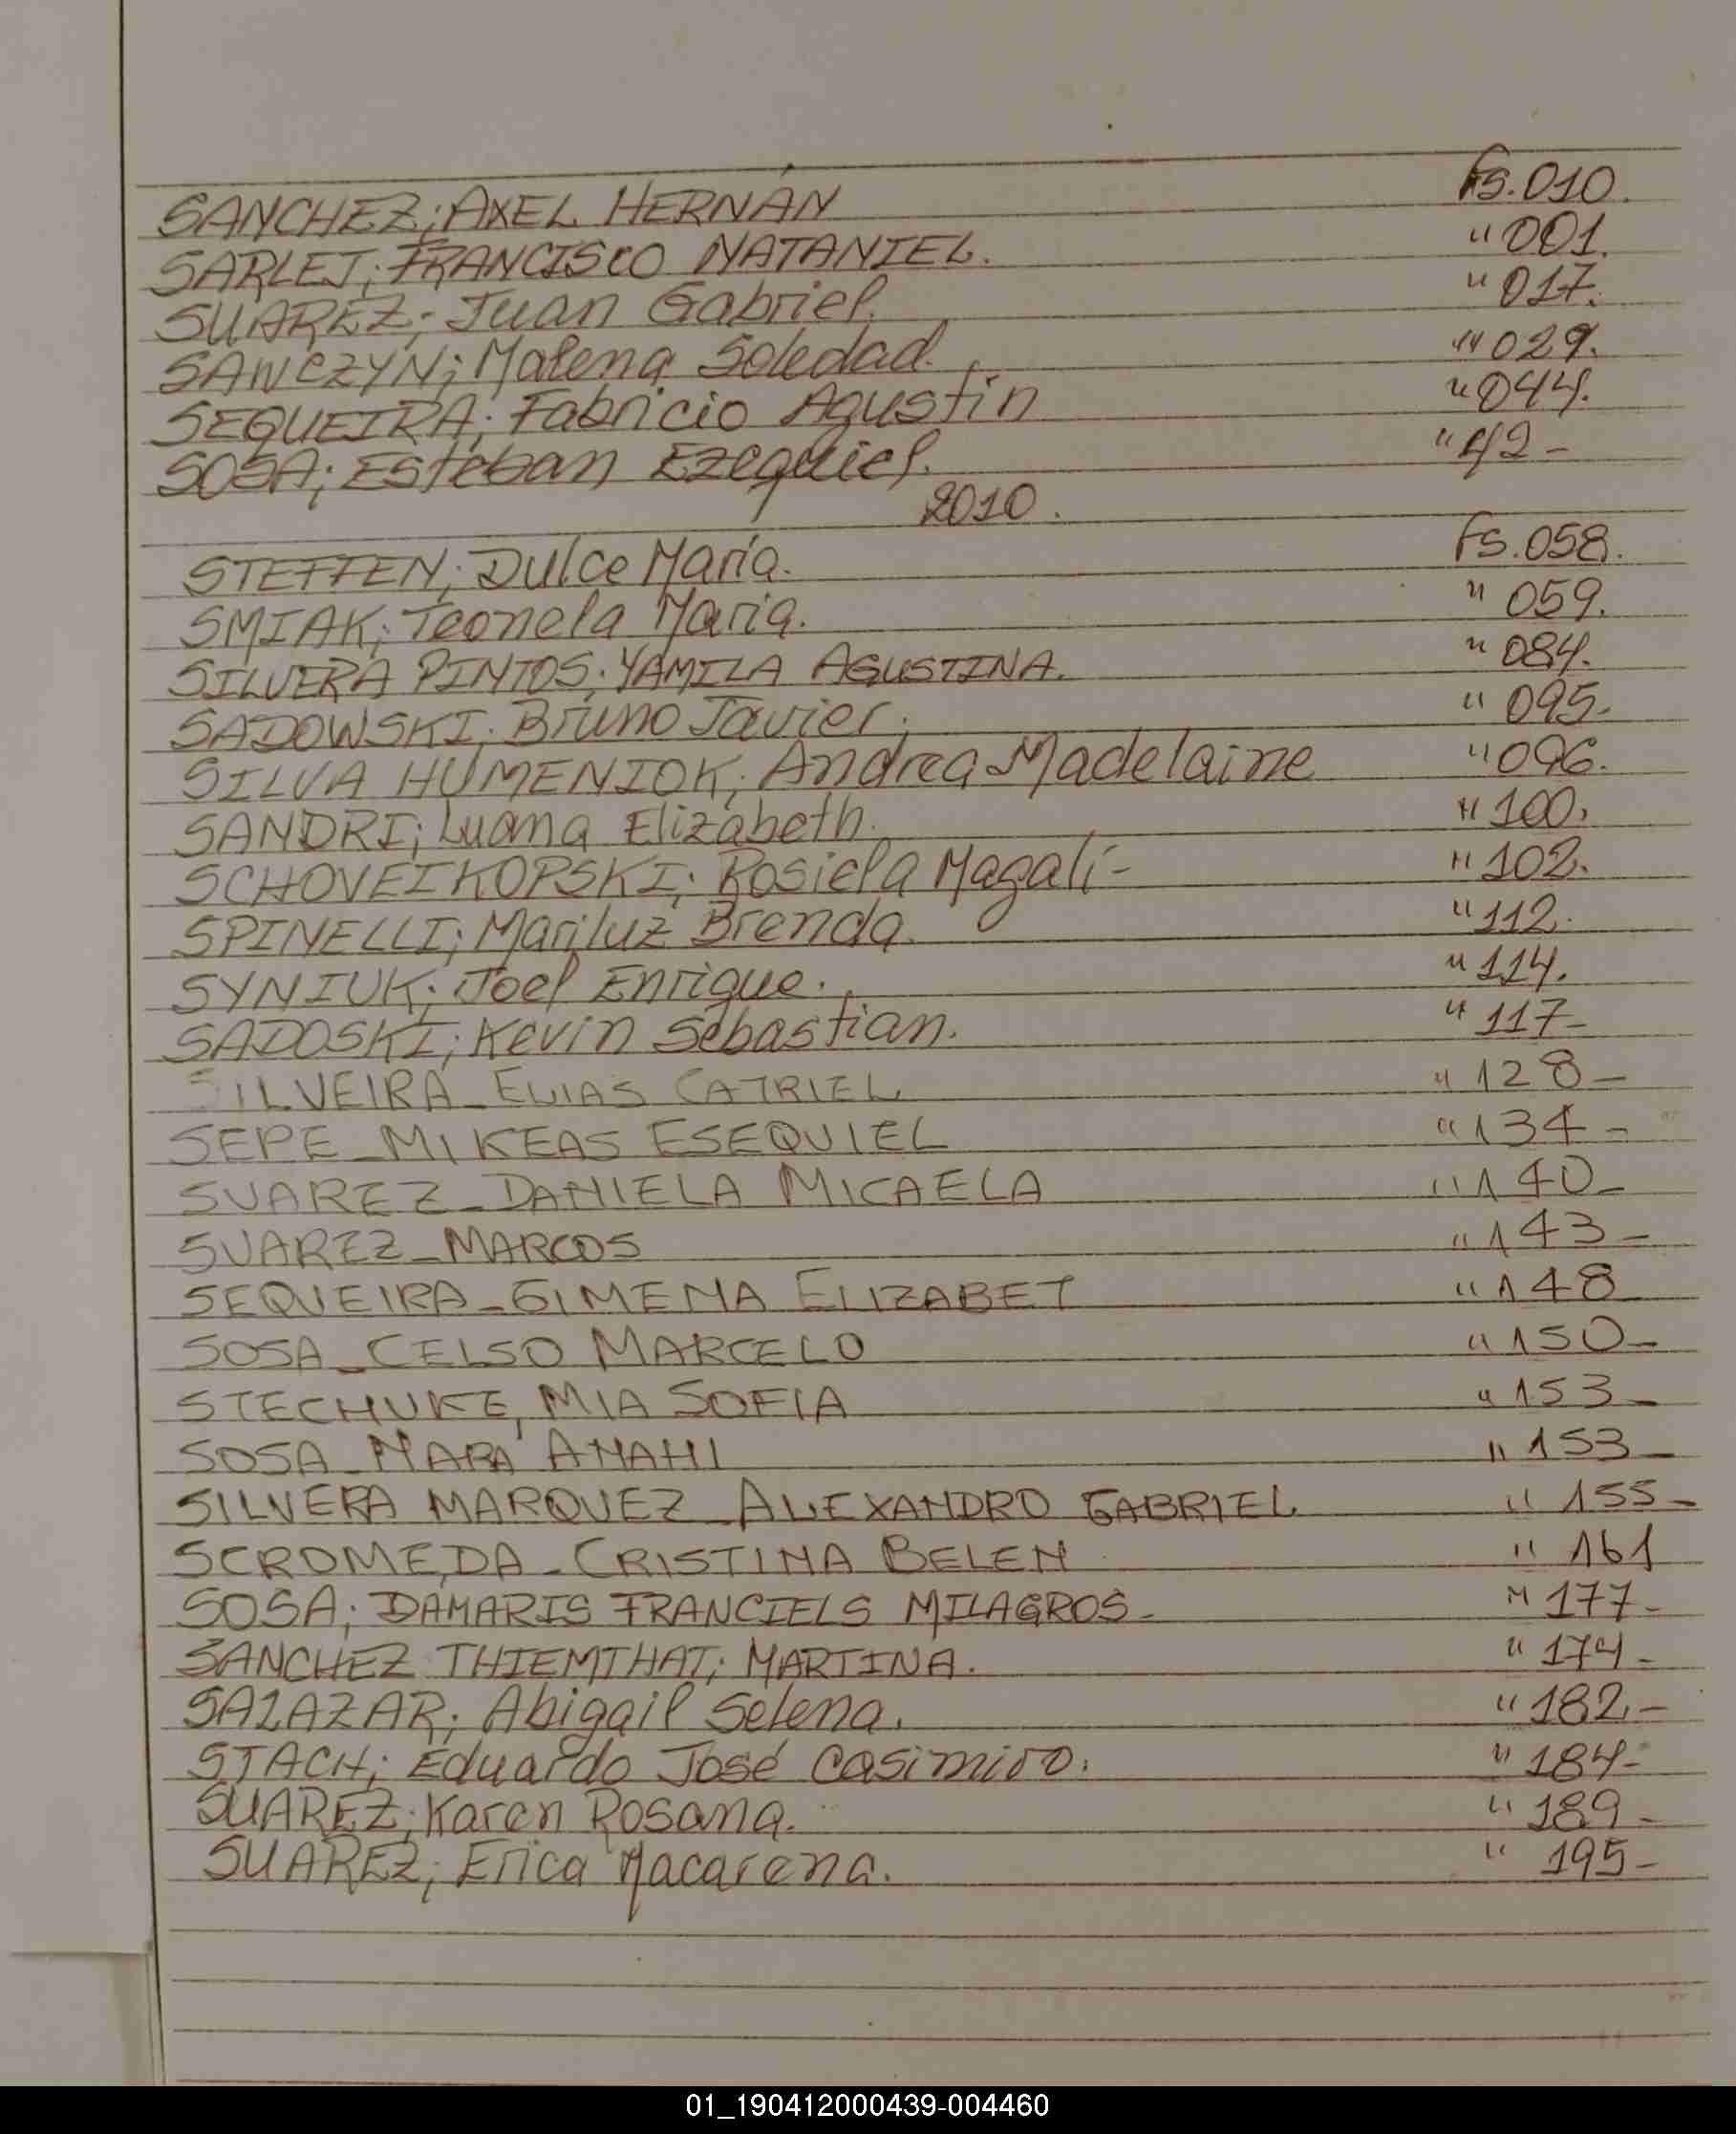 SANCHEZ; AXEL HERNÁN Fs. 010.
SARLEJ; FRANCISCO NATANIEL. " 001.
SUAREZ; Juan Gabriel. " 017.
SAWCZYN; Malena Soledad. " 029.
SEQUEIRA; Fabricio Agustín " 044.
SOSA; Esteban Ezequiel. " 42-
2010.
STEFFEN; Dulce María. Fs. 058.
SMIAK; Teonela Maria. " 059.
SILVERA PINTOS; YAMILA AGUSTINA. " 084.
SADOWSKI; Bruno Javier. " 095.
SILVA HUMENIOK; Andrea Madelaine " 096.
SANDRI; Luana Elizabeth. " 100.
SCHOVEIKOPSKI; Rosiela Magalí- " 102.
SPINELLI; Mariluz Brenda. " 112.
SYNIUK; Joel Enrique. " 114.
SADOSKI; Kevin Sebastian. " 117-
SILVEIRA_ELIAS CATRIEL " 128-
SEPE_MIKEAS ESEQUIEL " 134-
SUAREZ_DANIELA MICAELA " 140-
SUAREZ_MARCOS " 143-
SEQUEIRA_GIMENA ELIZABET " 148
SOSA_CELSO MARCELO " 150-
STECHUKE, MIA SOFIA " 153-
SOSA_MARA ANAHI " 153-
SILVERA MARQUEZ_ALEXANDRO GABRIEL " 155-
SCROMEDA_CRISTINA BELEN " 161
SOSA; DAMARIS FRANCIELS MILAGROS- " 177-
SANCHEZ THIEMTHAT; MARTINA. " 174-
SALAZAR; Abigail Selena. " 182.-
STACH; Eduardo José Casimiro. " 184-
SUAREZ; Karen Rosana. " 189-
SUAREZ; Erica Macarena. " 195-
01_190412000439-004460